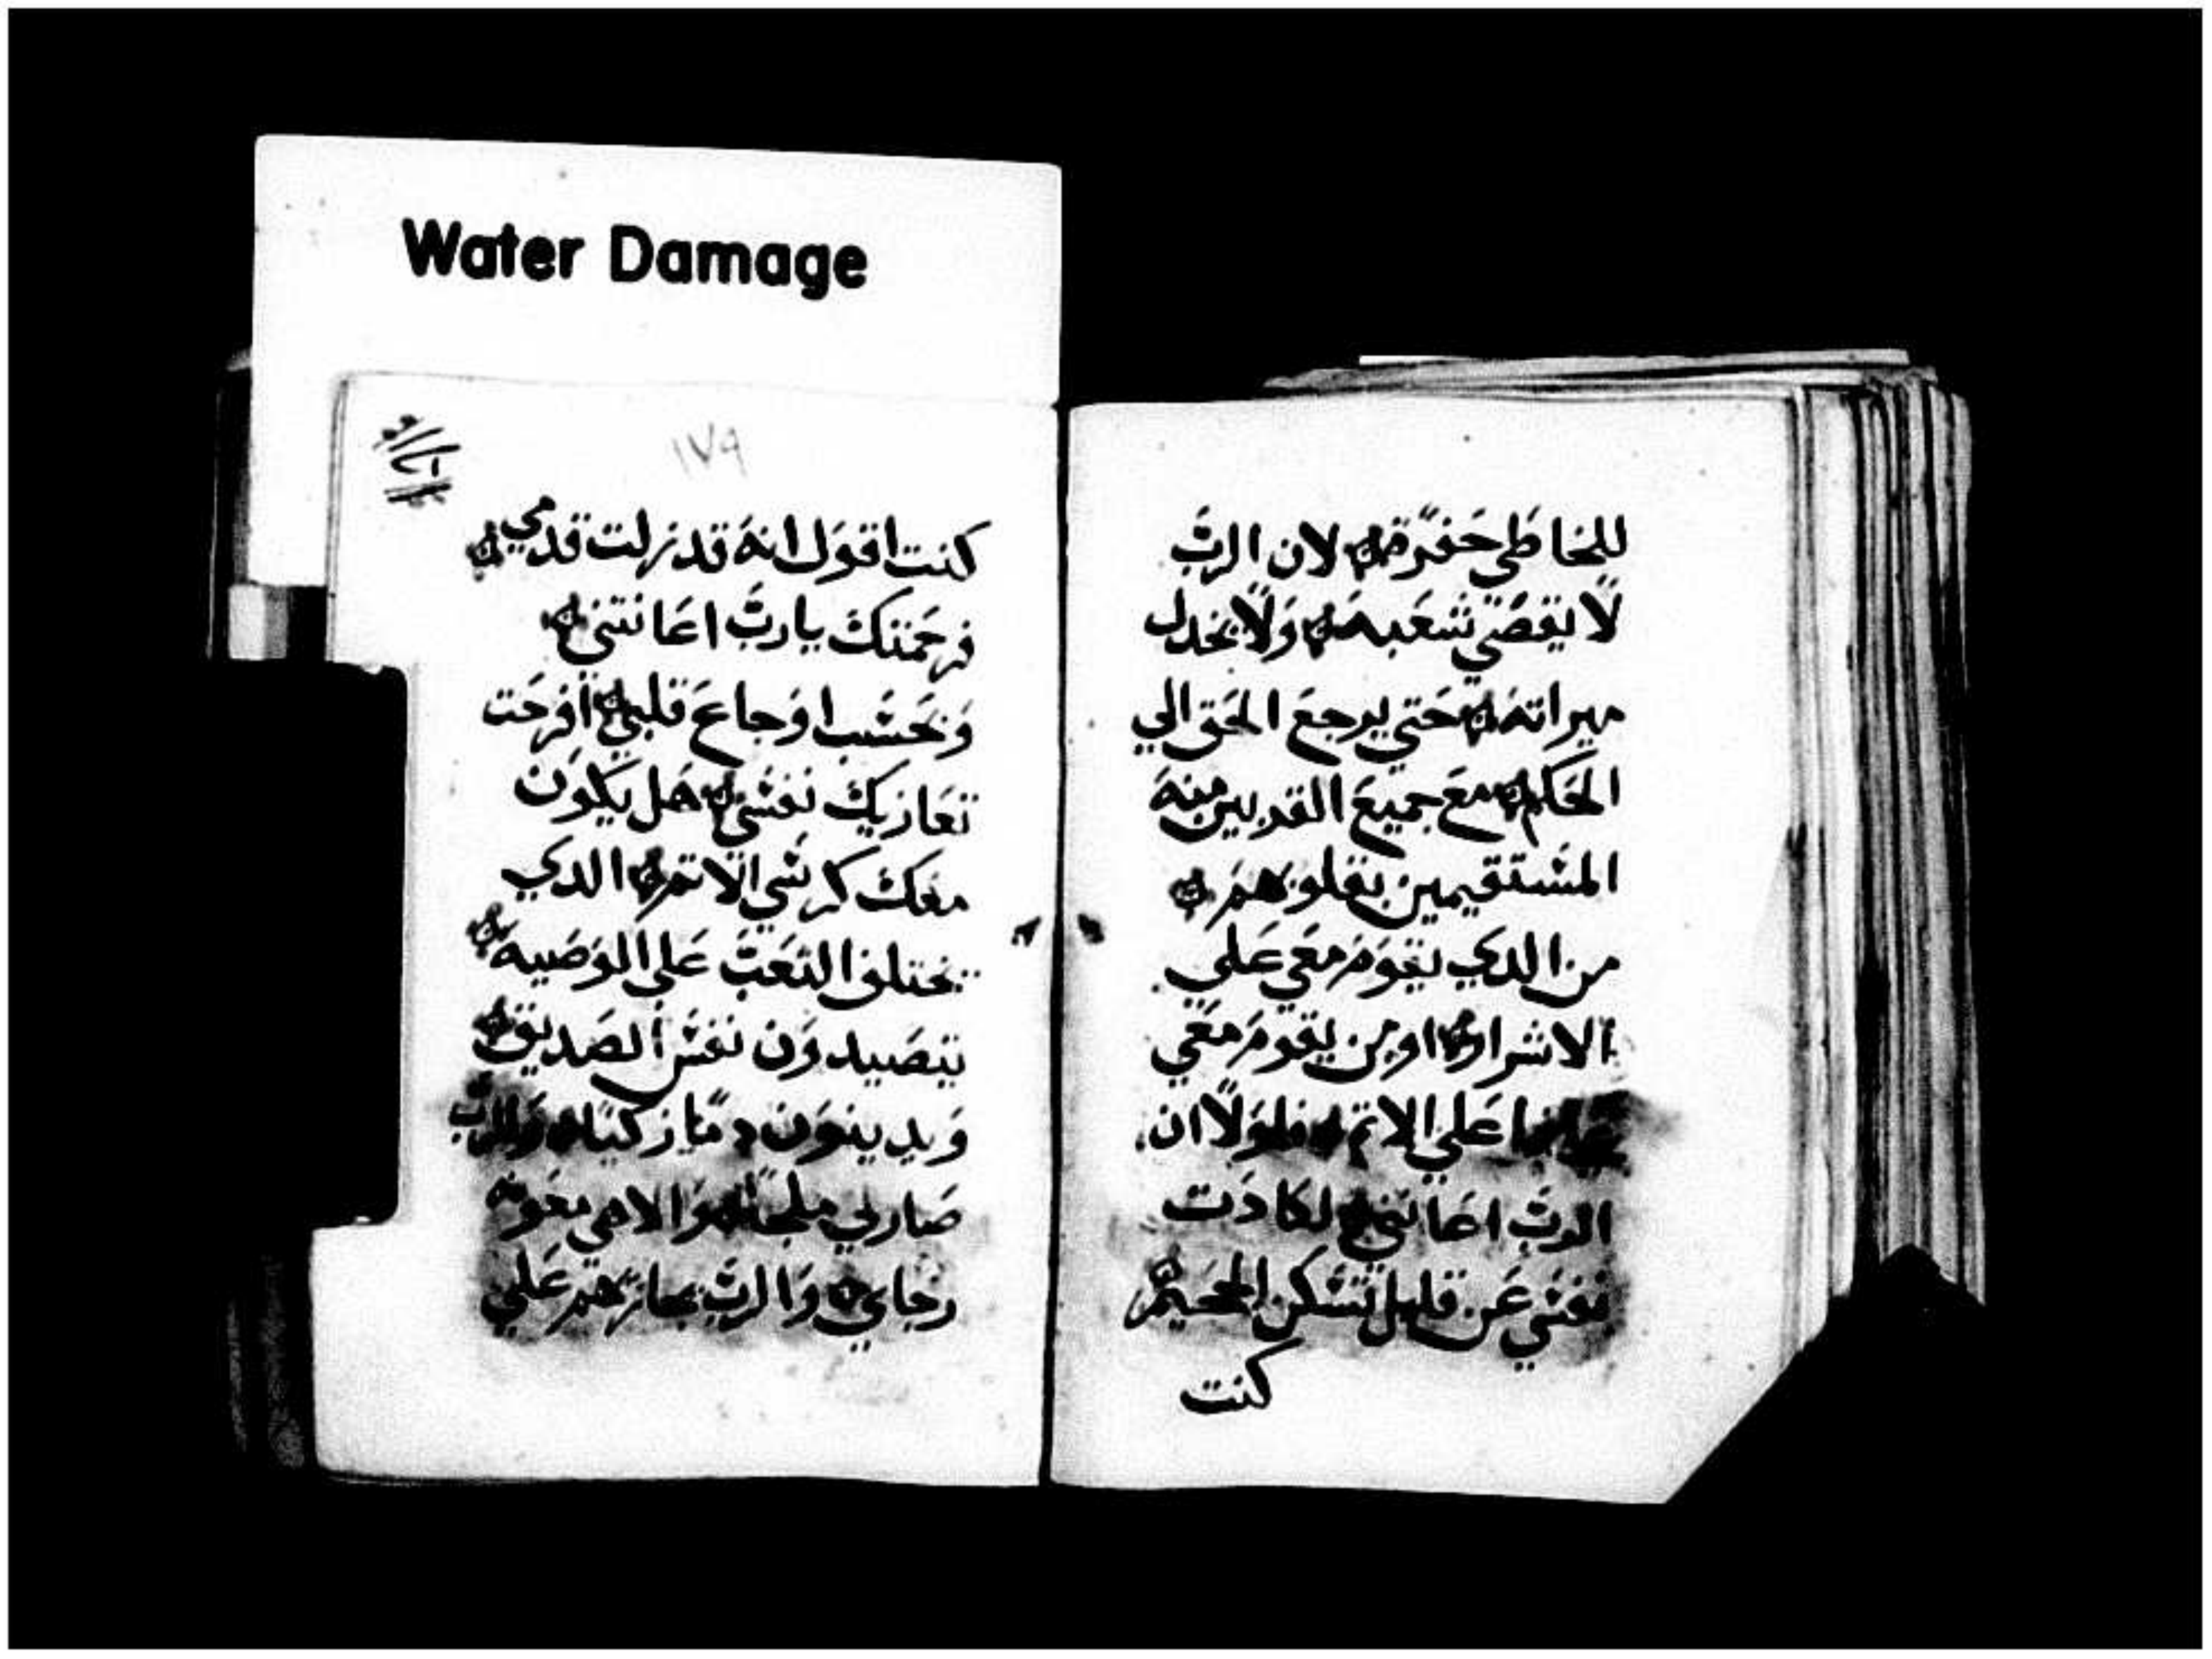 Water Damage
للخاطي حفرة لان الرب
لا يقصي شعبه ولا يخدل
ميراته حتي يرجع الحق الي
الحكم مع جميع القريبين منه
المستقيمين بقلوبهم
من الدي يقوم معي علي
الاشرار او من يقوم معي
علي الاتم فلولا ان
الرب اعانني لكادت
نفسي عن قليل تسكن الجحيم
كنت
١٧٩
كنت اقول انه قد زلت قدمي
فرحمتك يارب اعانتني
وبحسب اوجاع قلبي افرحت
تعازيك نفسي هل يكون
معك كرسي الاتم الدي
يختلف التعب علي الوصيه
يتصيدون نفس الصديق
ويدينون دما زكيا والرب
صار لي ملجا والاهي معونه
رجاي والرب يجازيهم علي